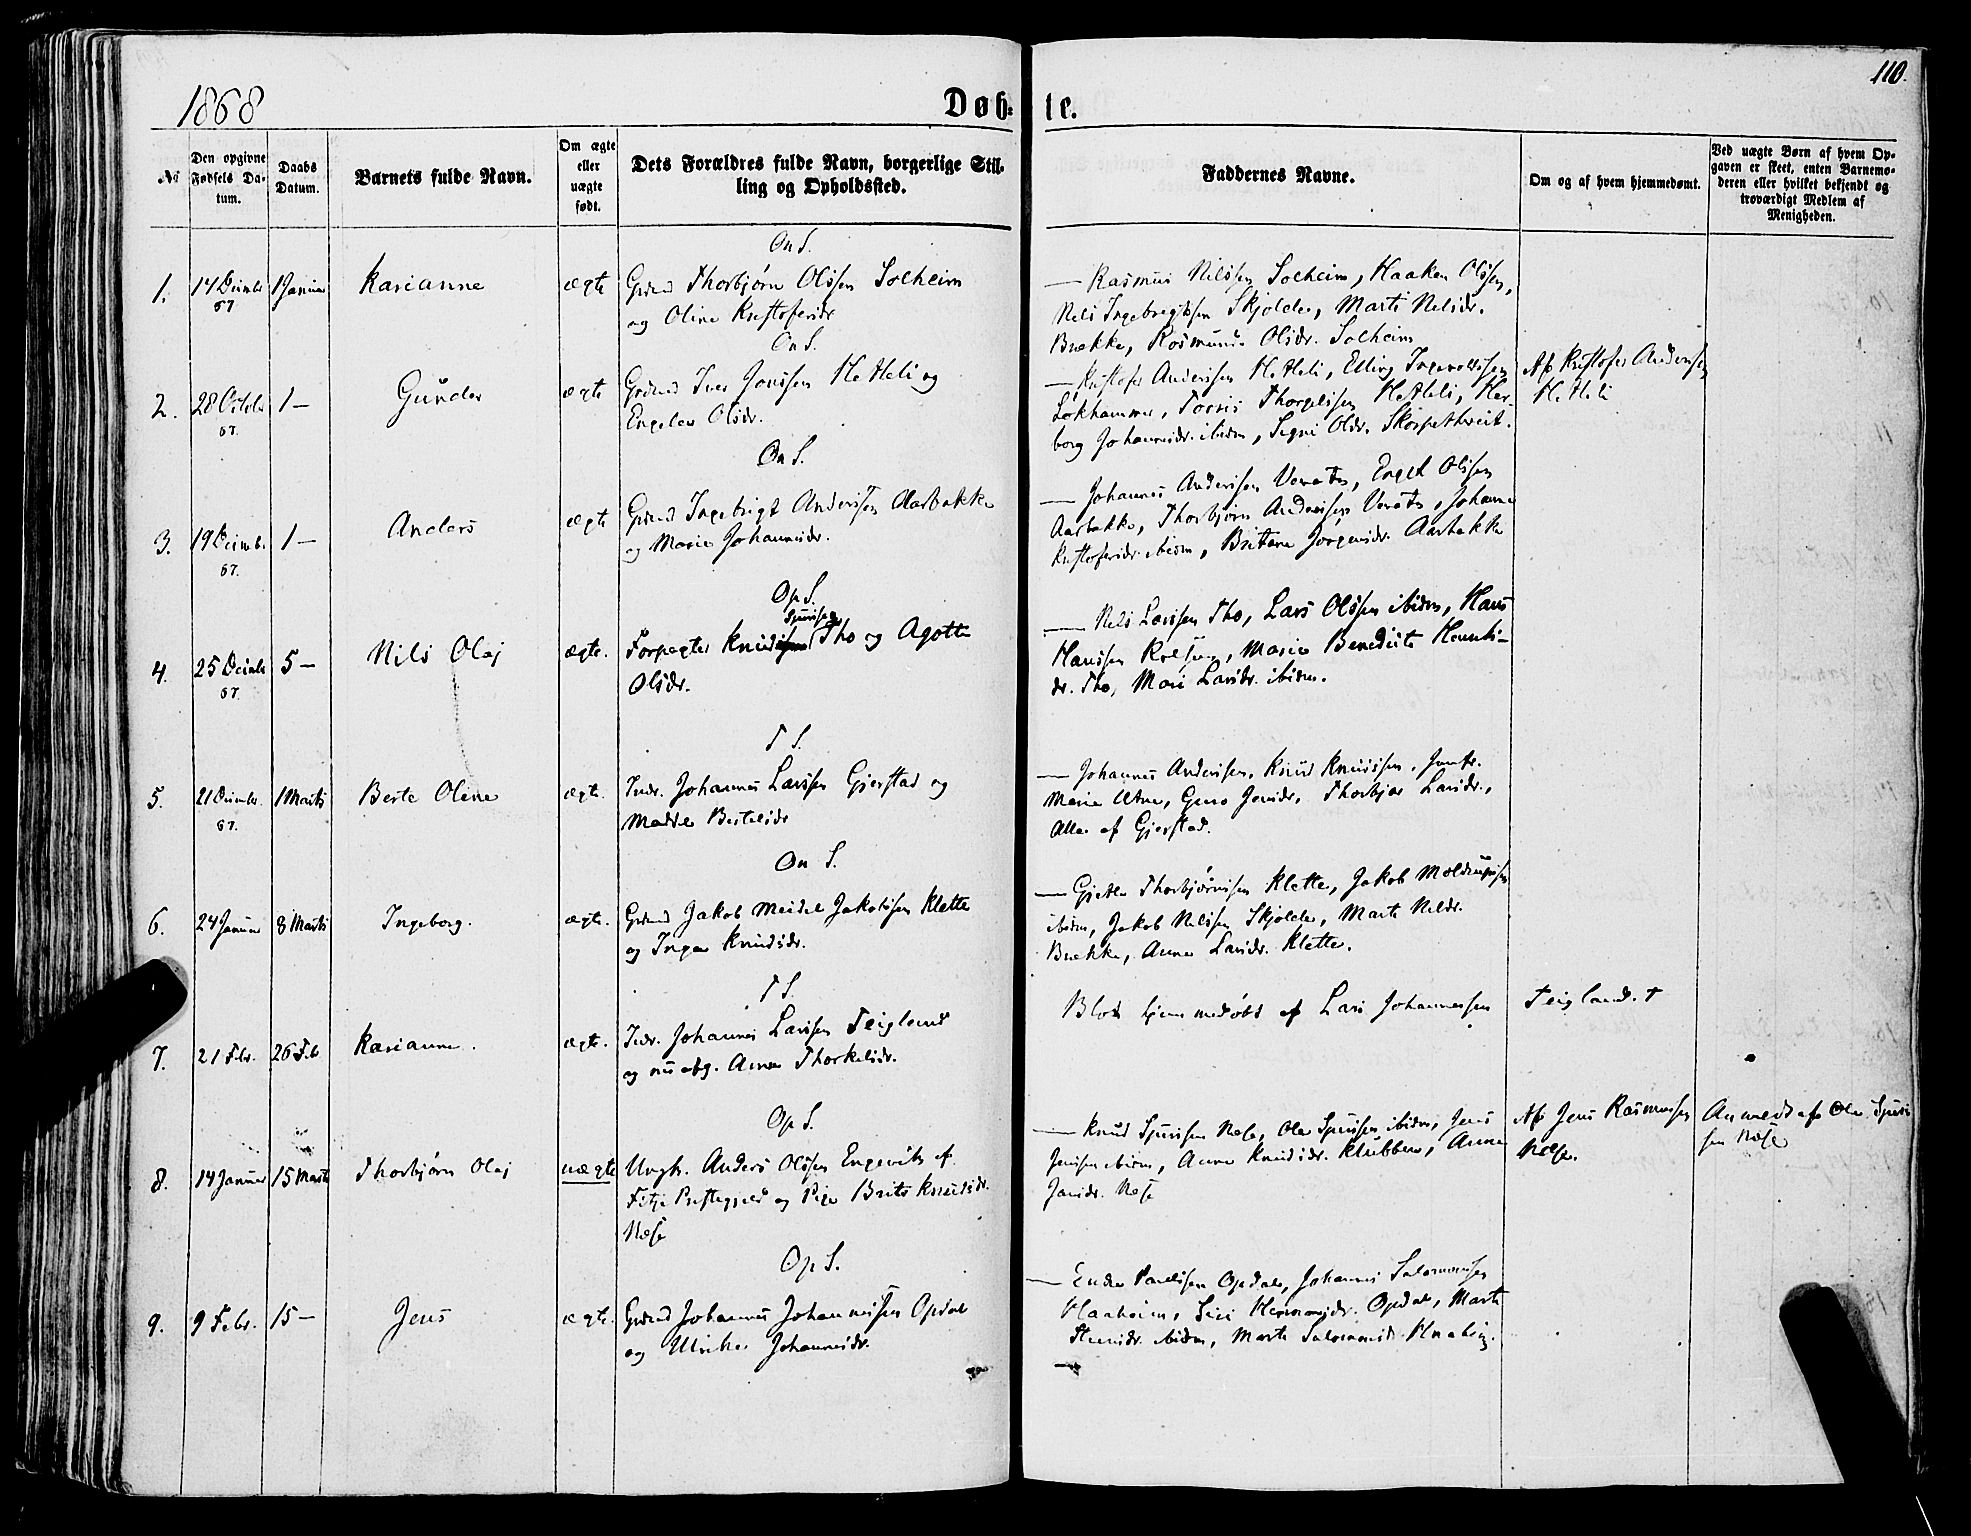 110.
1868
Døb- te.
No
Den opgivne Fødsels Da-tum.
Daabs Datum.
Barnets fulde Navn.
Om ægte eller uægte født.
Dets Forældres fulde Navn, borgerlige Stil-
ling og Opholdssted.
Faddernes Navne.
Om og af hvem hjemmedøbt.
Ved uægte Børn af hvem Op-
gaven er skeet, enten Barnemo-
deren eller hvilket bekjendt og
troværdigt Medlem af
Menigheden.
On S.
1. 14 Decmbr 67 1 Januar Karianne ægte Grdmd Thorbjørn Olsen Solheim
og Oline Kristofersdr
— Rasmus Nilssen Solheim, Haakon Olssen,
Nels Ingebregtssen Skjolde, Marti Nelsdr.
Brekke, Rosmunda Olsdr. Solheim
On S.
2. 28 Octobr 67. 1 — Gunder ægte Grdmd Iver Jonssen Hetleli og
Engelev Olsdr.
— Kristofer Anderssen Hetleli, Elling Ingevaldssen
Løkhammer, Torris Thorgelssen Hetleli, Her-
borg Johannesdr. ibidm, Signi Olsdr. Skorpethveit.
Af Kristofer Anderssen
Hetleli
On S.
3. 19 Decmbr. 67. 1 — Anders ægte Grdmd Ingebrigt Anderssen Aarbakke
og Marie Johannesdr.
— Johannes Anderssen Verøte, Engel Olssen
Aarbakke, Thorbjørn Anderssen Verøte, Johanne
Kristofersdr. ibidm, Britane Jørgensdr. Aarbakke
Op S.
Sjurssen
4. 25 Decmbr 67 5 — Nils Olaj ægte. Forpagter Knud Tho og Agotte
Olsdr.
— Nels Larssen Tho, Lars Olssen ibidm, Hans
Hanssen, Marie Benedicte
dr. Tho, Mari Larsdr. ibidm.
T S.
5. 21 Decmbr. 67. 1 Marts Berte Oline ægte. Indr. Johannes Larssen Gjerstad og
Madde Bertelsdr
— Johannes Anderssen, Knud Knudssen, Jomfr.
Marie Utne, Guro Jonsdr., Thorbjør Larsdr.,
Alle af Gjerstad.
On S.
6. 24 Januar 8 Marts Ingeborg. ægte. Grdmd Jakob Meidel Jakobssen Klette
og Inga Knudsdr.
— Gjetle Thorbjørnssen Klette, Jakob
ibidm, Jakob Nelssen Skjolde, Marte Nelsdr.
Brekke, Anne Larsdr. Klette.
T S.
7. 21 Febr. 26 Feb Karianne. ægte. Indr. Johannes Larssen Teigland
og Anne Thorkelsdr.
Blot hjemmedøbt af Lars Johannessen Teigland. †
Op S.
8. 14 Januar 15 Marts Thorbjørn Olaj uægte Ungk. Anders Olssen Engevik af
Fitje Prestegjeld og Pige Brita Knudsdr.
Næse
— Knud Sjurssen Nese, Ole Sjurssen ibidm, Jens
Jenssen ibidm, Anne Knudsdr. Klubben, Anne
Jansdr. Nese
Af Jens Rasmussen
Nese.
Anmeldt af Ole Sjurs
sen Næse
Op S.
9. 9 Febr. 15 — Jens ægte. Grdmd Johannes Johannessen Opdal
og Ulrikke Johannesdr.
— Endre Paulssen Opdal, Johannes Salomonssen
Haaheim, Siri Hermansdr. Opdal, Marte
ibidm, Marte Salomonsdr.